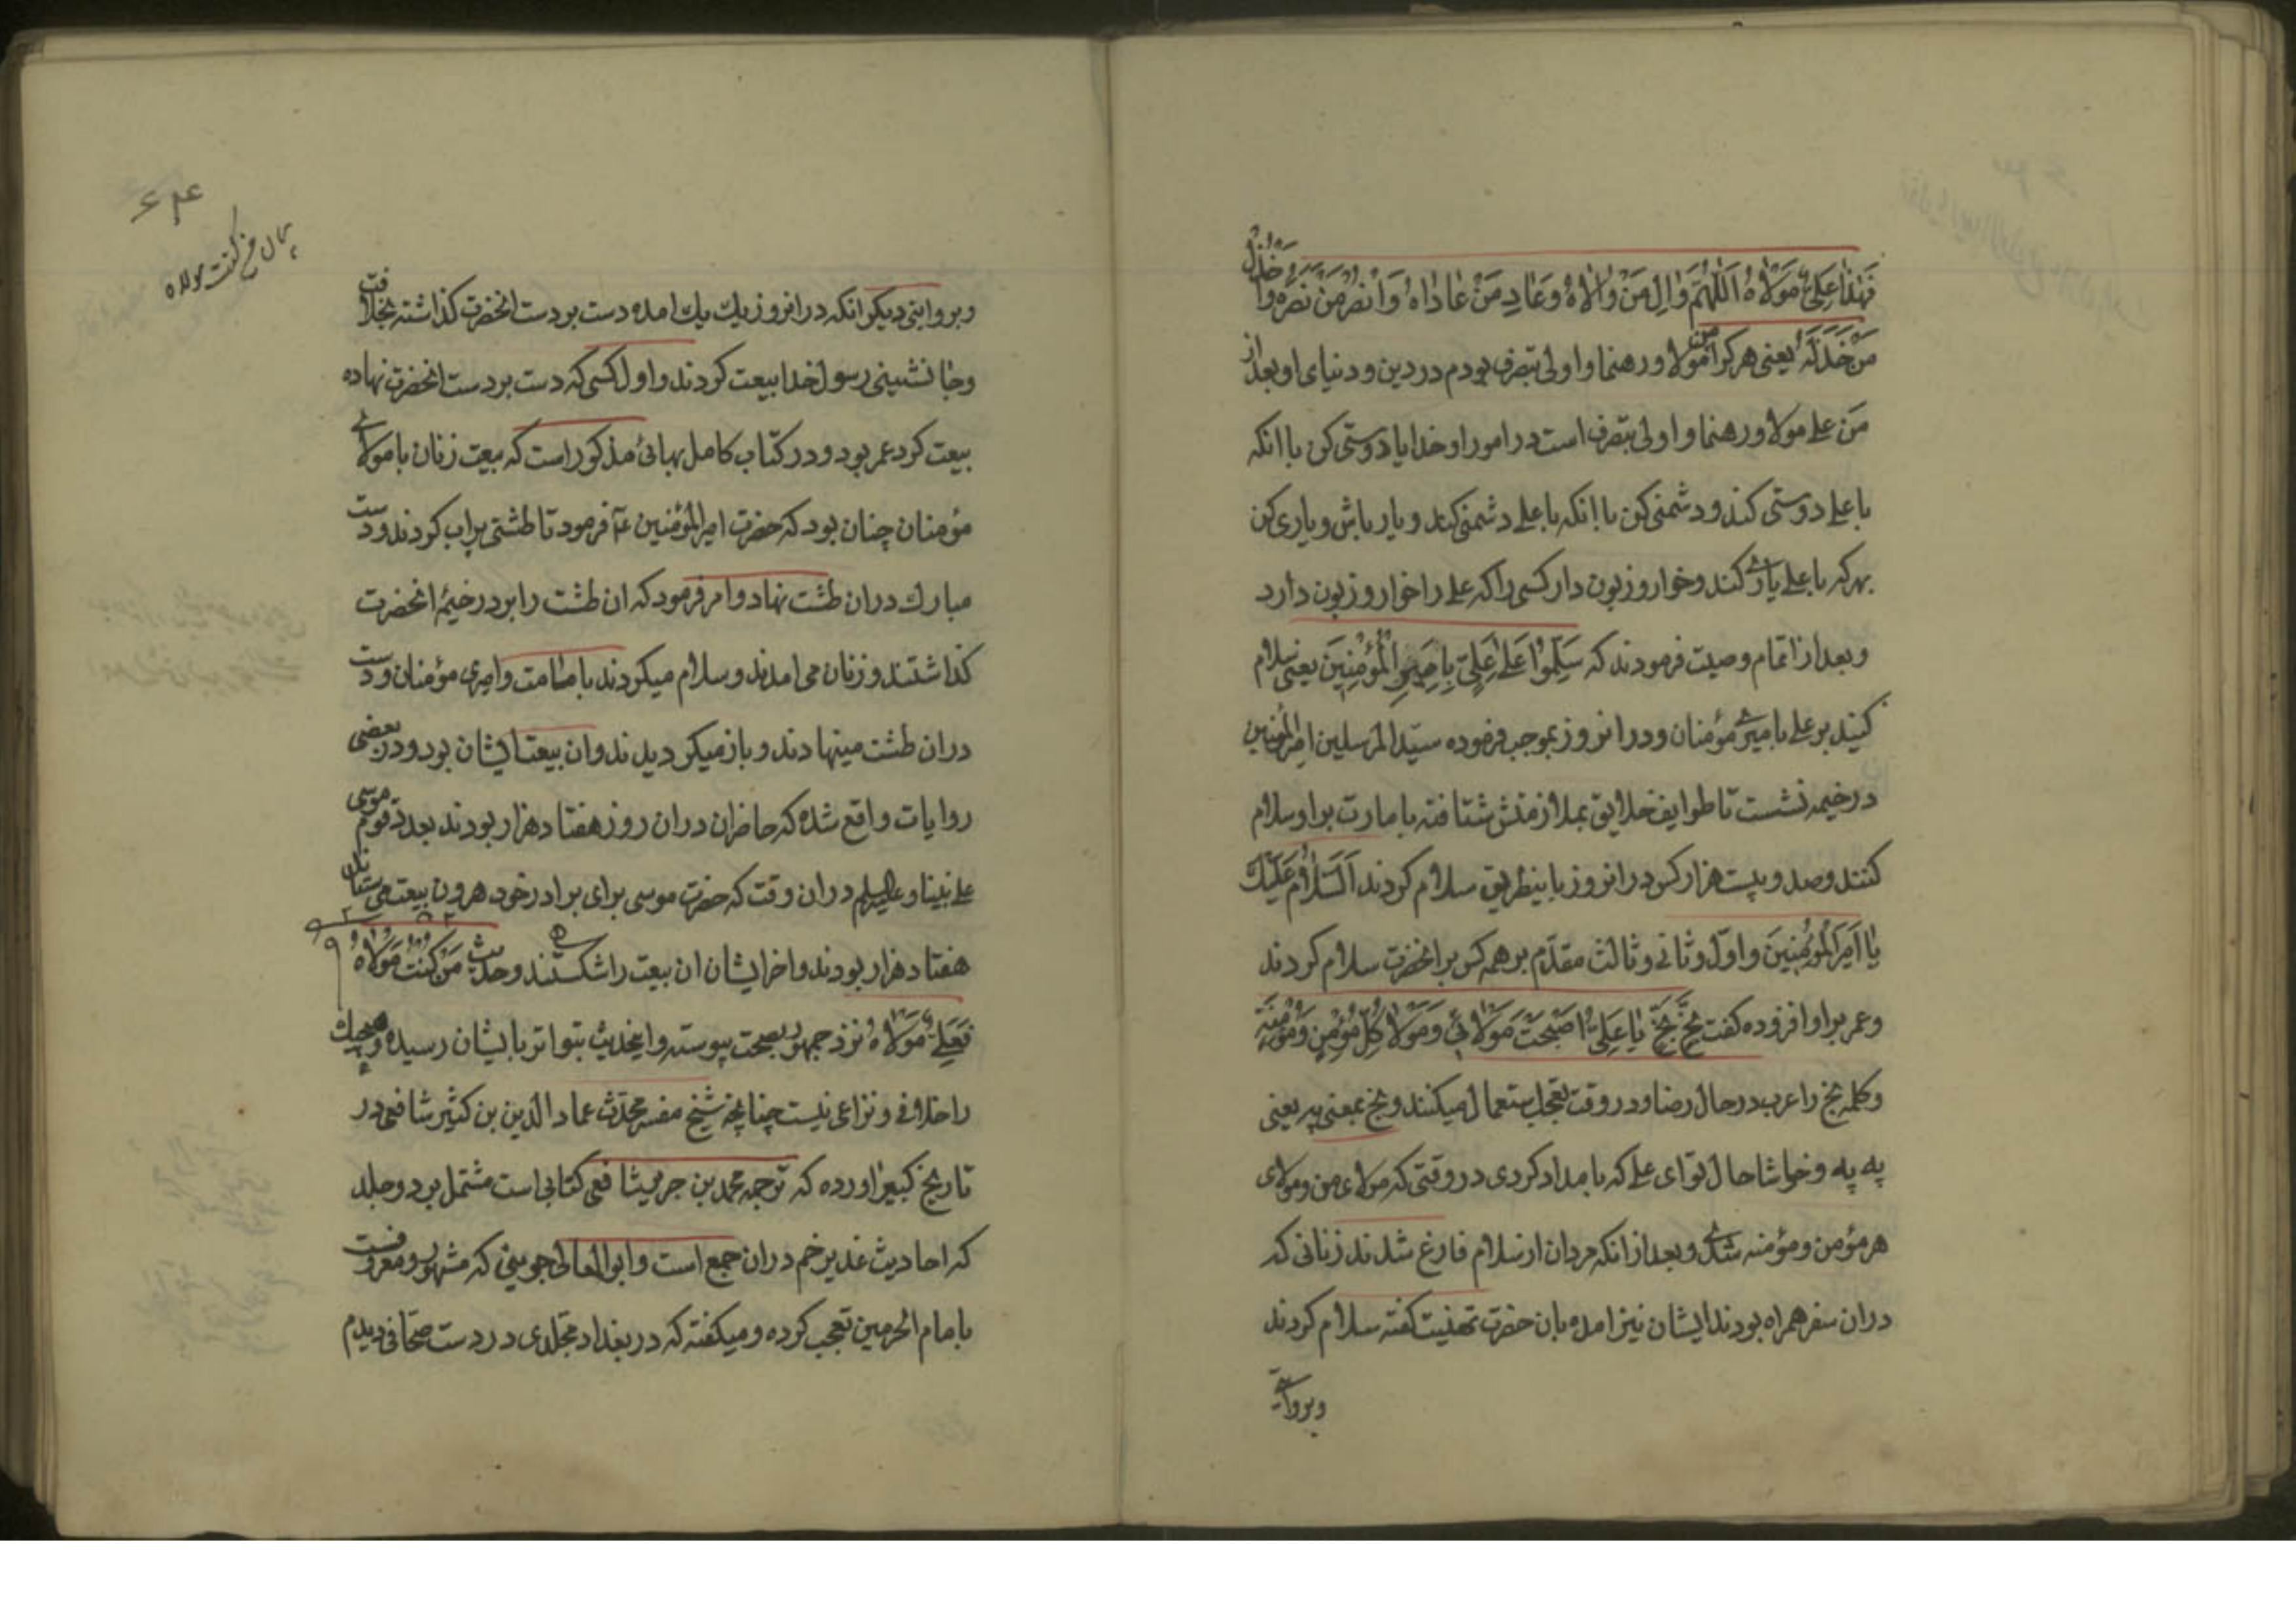 فَهٰذٰا عَلِیٌّ مَوْلٰاهُ اَللّٰهُمَّ وٰالِ مَنْ وٰالٰاهُ وَعٰادِ مَنْ عٰادٰاهُ وَانْصُرْ مَنْ نَصَرَهُ وَاخْذُلْ
مَنْ خَذَلَهُ یعنی هرکرا من مولا ورهنما واولی بتصرف بودم در دین ودنیای او بعد از
من علی مولا ورهنما واولی بتصرف است در امور او خدایا دوستی کن با انکه
با علی دوستی کند ودشمنی کن با انکه با علی دشمنی کند ویار باش ویاری کن
بهرکه با علی یاری کند وخوار وزبون دار کسی را که علی را خوار وزبون دارد
وبعد از اتمام وصیت فرمودند که سَلِّمُوا عَلٰی عَلِیٍّ بِاِمْرَةِ الْمُؤْمِنِینَ یعنی سلام
کنید بر علی بامیری مؤمنان ودر انروز بموجب فرموده سیّد المرسلین امیرالمؤمنین
در خیمه نشست تا طوایف خلایق بملازمتش شتافته بامارت بر او سلام
کنند وصد وبیست هزار کس در انروز باینطریق سلام کردند اَلسَّلٰامُ عَلَیْكَ
یٰا اَمِیرَ الْمُؤْمِنِینَ واوّل وثانی وثالث مقدّم بر همه کس بر انحضرت سلام کردند
وعمر بر او افزوده کفت بَخٍّ بَخٍّ یٰا عَلِیُّ اَصْبَحْتَ مَوْلٰائی وَمَوْلٰا کُلِّ مُؤْمِنٍ وَمُؤْمِنَةٍ
وکلمه بخ را عرب در حال رضا ودر وقت تعجب استعمال میکنند وبخ بمعنی په یعنی
په په وخوشا حال تو ای علی که بامداد کردی در وقتی که مولای من ومولای
هر مؤمن ومؤمنه شدی وبعد از انکه مردان از سلام فارغ شدند زنانی که
دران سفر همراه بودند ایشان نیز امده بان حضرت تهنیت کفته سلام کردند
وبروایتی
وبروایتی دیکر انکه در انروز یك یك امده دست بر دست انحضرت کذاشته بخلافت
وجانشینی رسول خدا بیعت کردند واول کسی که دست بر دست انحضرت نهاده
بیعت کرد عمر بود ودر کتاب کامل بهائی مذکور است که بیعت زنان با مولای
مؤمنان چنان بود که حضرت امیرالمؤمنین ع فرمود تا طشتی پر اب کردند ودست
مبارك دران طشت نهاد وامر فرمود که ان طشت را بر در خیمهٔ انحضرت
کذاشتند وزنان می امدند وسلام میکردند بامامت وامیری مؤمنان ودست
دران طشت مینهادند وباز میکردیدند وان بیعت ایشان بود ودر بعضی
روایات واقع شده که حاضران دران روز هفتاد هزار بودند بعدد قوم موسی
علی نبینا وعلیه السلم دران وقت که حضرت موسی برای برادر خود هرون بیعت می ستاند
هفتاد هزار بودند واخر ایشان ان بیعت را شکستند وحدیث مَنْ کُنْتُ مَوْلٰاهُ
فَعَلِیٌّ مَوْلٰاهُ نزد جمهور بصحت پیوسته واینحدیث بتواتر بایشان رسیده وهیچیك
را خلافی ونزاعی نیست چنانچه شیخ مفسر محدّث عماد الدّین بن کثیر شافعی در
تاریخ کبیر اورده که ترجمه محمد بن جریر شافعی کتابی است مشتمل بر دو جلد
که احادیث غدیر خم دران جمع است وابو المعالی جوینی که مشهور ومعروفست
بامام الحرمین تعجب کرده ومیکفته که در بغداد مجلدی در دست صحافی دیدم